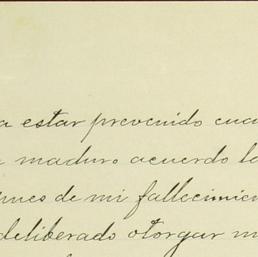 a estar prevenido cua
maduro acuerdo lo
ones de mi fallecimien
deliberado otorgar m